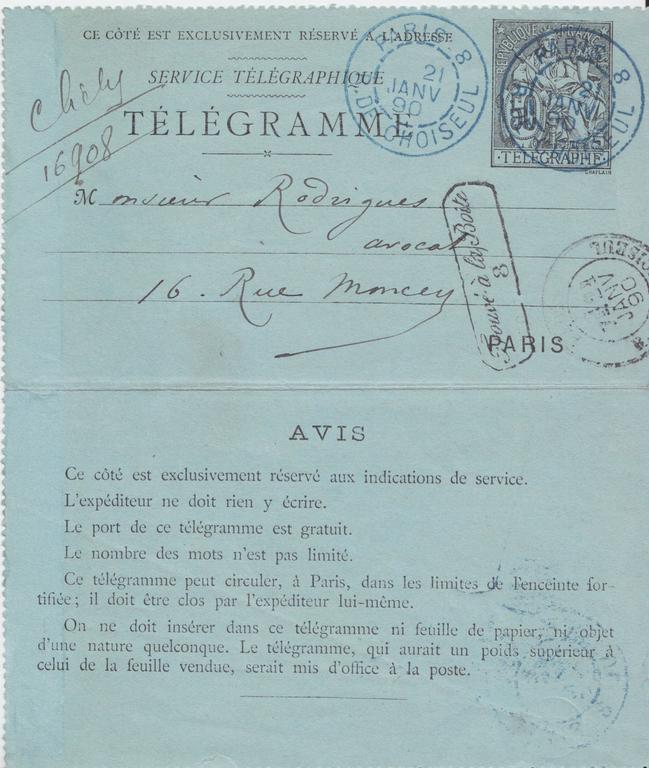 CE CÔTÉ EST EXCLUSIVEMENT RÉSERVÉ A L'ADRESSE
SERVICE TÉLÉGRAPHIQUE
TÉLÉGRAMME
16908
PARIS 8
21
JANV
90
DE CHOISEUL
REPUBLIQUE FRANC
PARIS 8
21
JANV
90
EUL
TÉLÉGRAPHE
CHAPLAIN
Monsieur Rodrigues
avocat
16. Rue Moncey
Trouvé à la Boîte
8
PARIS
JANV
90
AVIS
Ce côté est exclusivement réservé aux indications de service.
L'expéditeur ne doit rien y écrire.
Le port de ce télégramme est gratuit.
Le nombre des mots n'est pas limité.
Ce télégramme peut circuler, à Paris, dans les limites de l'enceinte for-
tifiée; il doit être clos par l'expéditeur lui-même.
On ne doit insérer dans ce télégramme ni feuille de papier, ni objet
d'une nature quelconque. Le télégramme, qui aurait un poids supérieur à
celui de la feuille vendue, serait mis d'office à la poste.